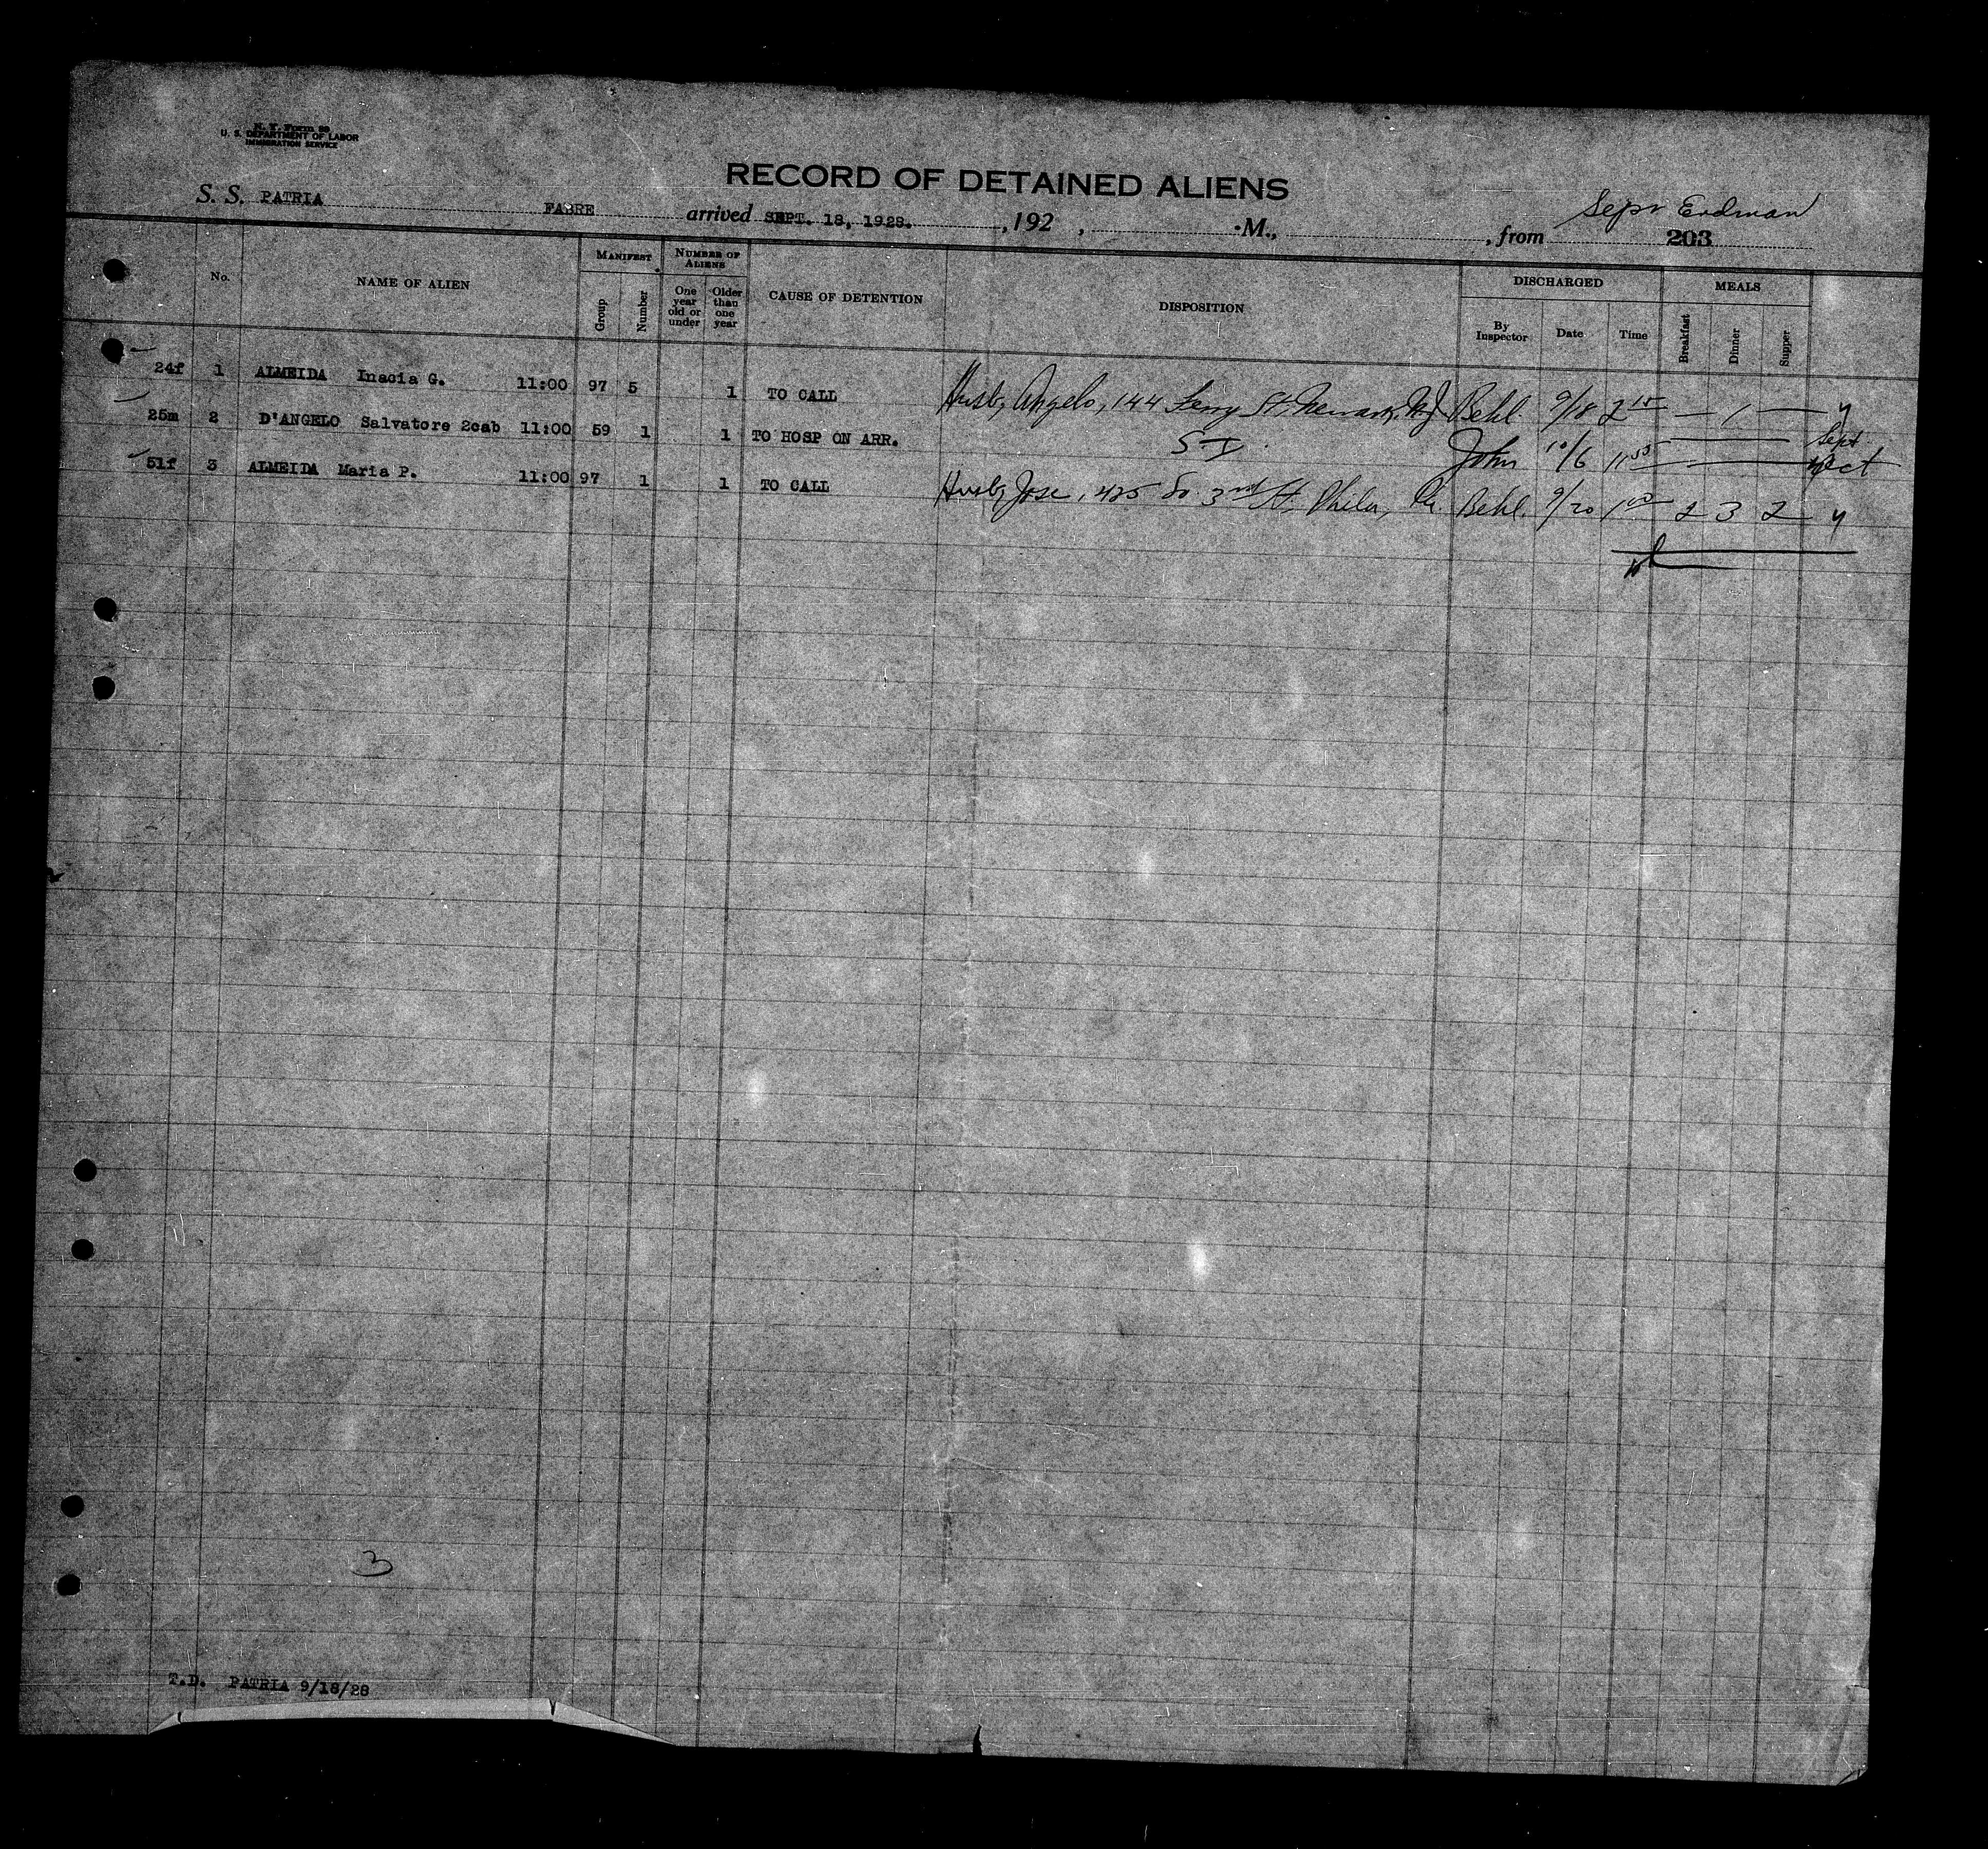 N. Y. Form 89
U. S. DEPARTMENT OF LABOR
IMMIGRATION SERVICE
RECORD OF DETAINED ALIENS
S. S. PATRIA FABRE arrived SEPT. 18, 1928. , 192 , M., , from 203
Erdman
No. NAME OF ALIEN MANIFEST Group Number NUMBER OF ALIENS One year old or under Older than one year CAUSE OF DETENTION DISPOSITION DISCHARGED By Inspector Date Time MEALS Breakfast Dinner Supper
24f 1 ALMEIDA Inacia G. 11:00 97 5 1 TO CALL Husb, Angelo, 144 St, Newark, NJ Behl 9/18 2 15 — 1 — y
25m 2 D'ANGELO Salvatore 2cab 11:00 59 1 1 TO HOSP ON ARR. S I John 10/6 11 55 Sept Oct
51f 3 ALMEIDA Maria P. 11:00 97 1 1 TO CALL Husb, Jose, 425 So. 3rd St, Phila, Pa. Behl. 9/20 1 00 2 3 2 y
3
T.D. PATRIA 9/18/28